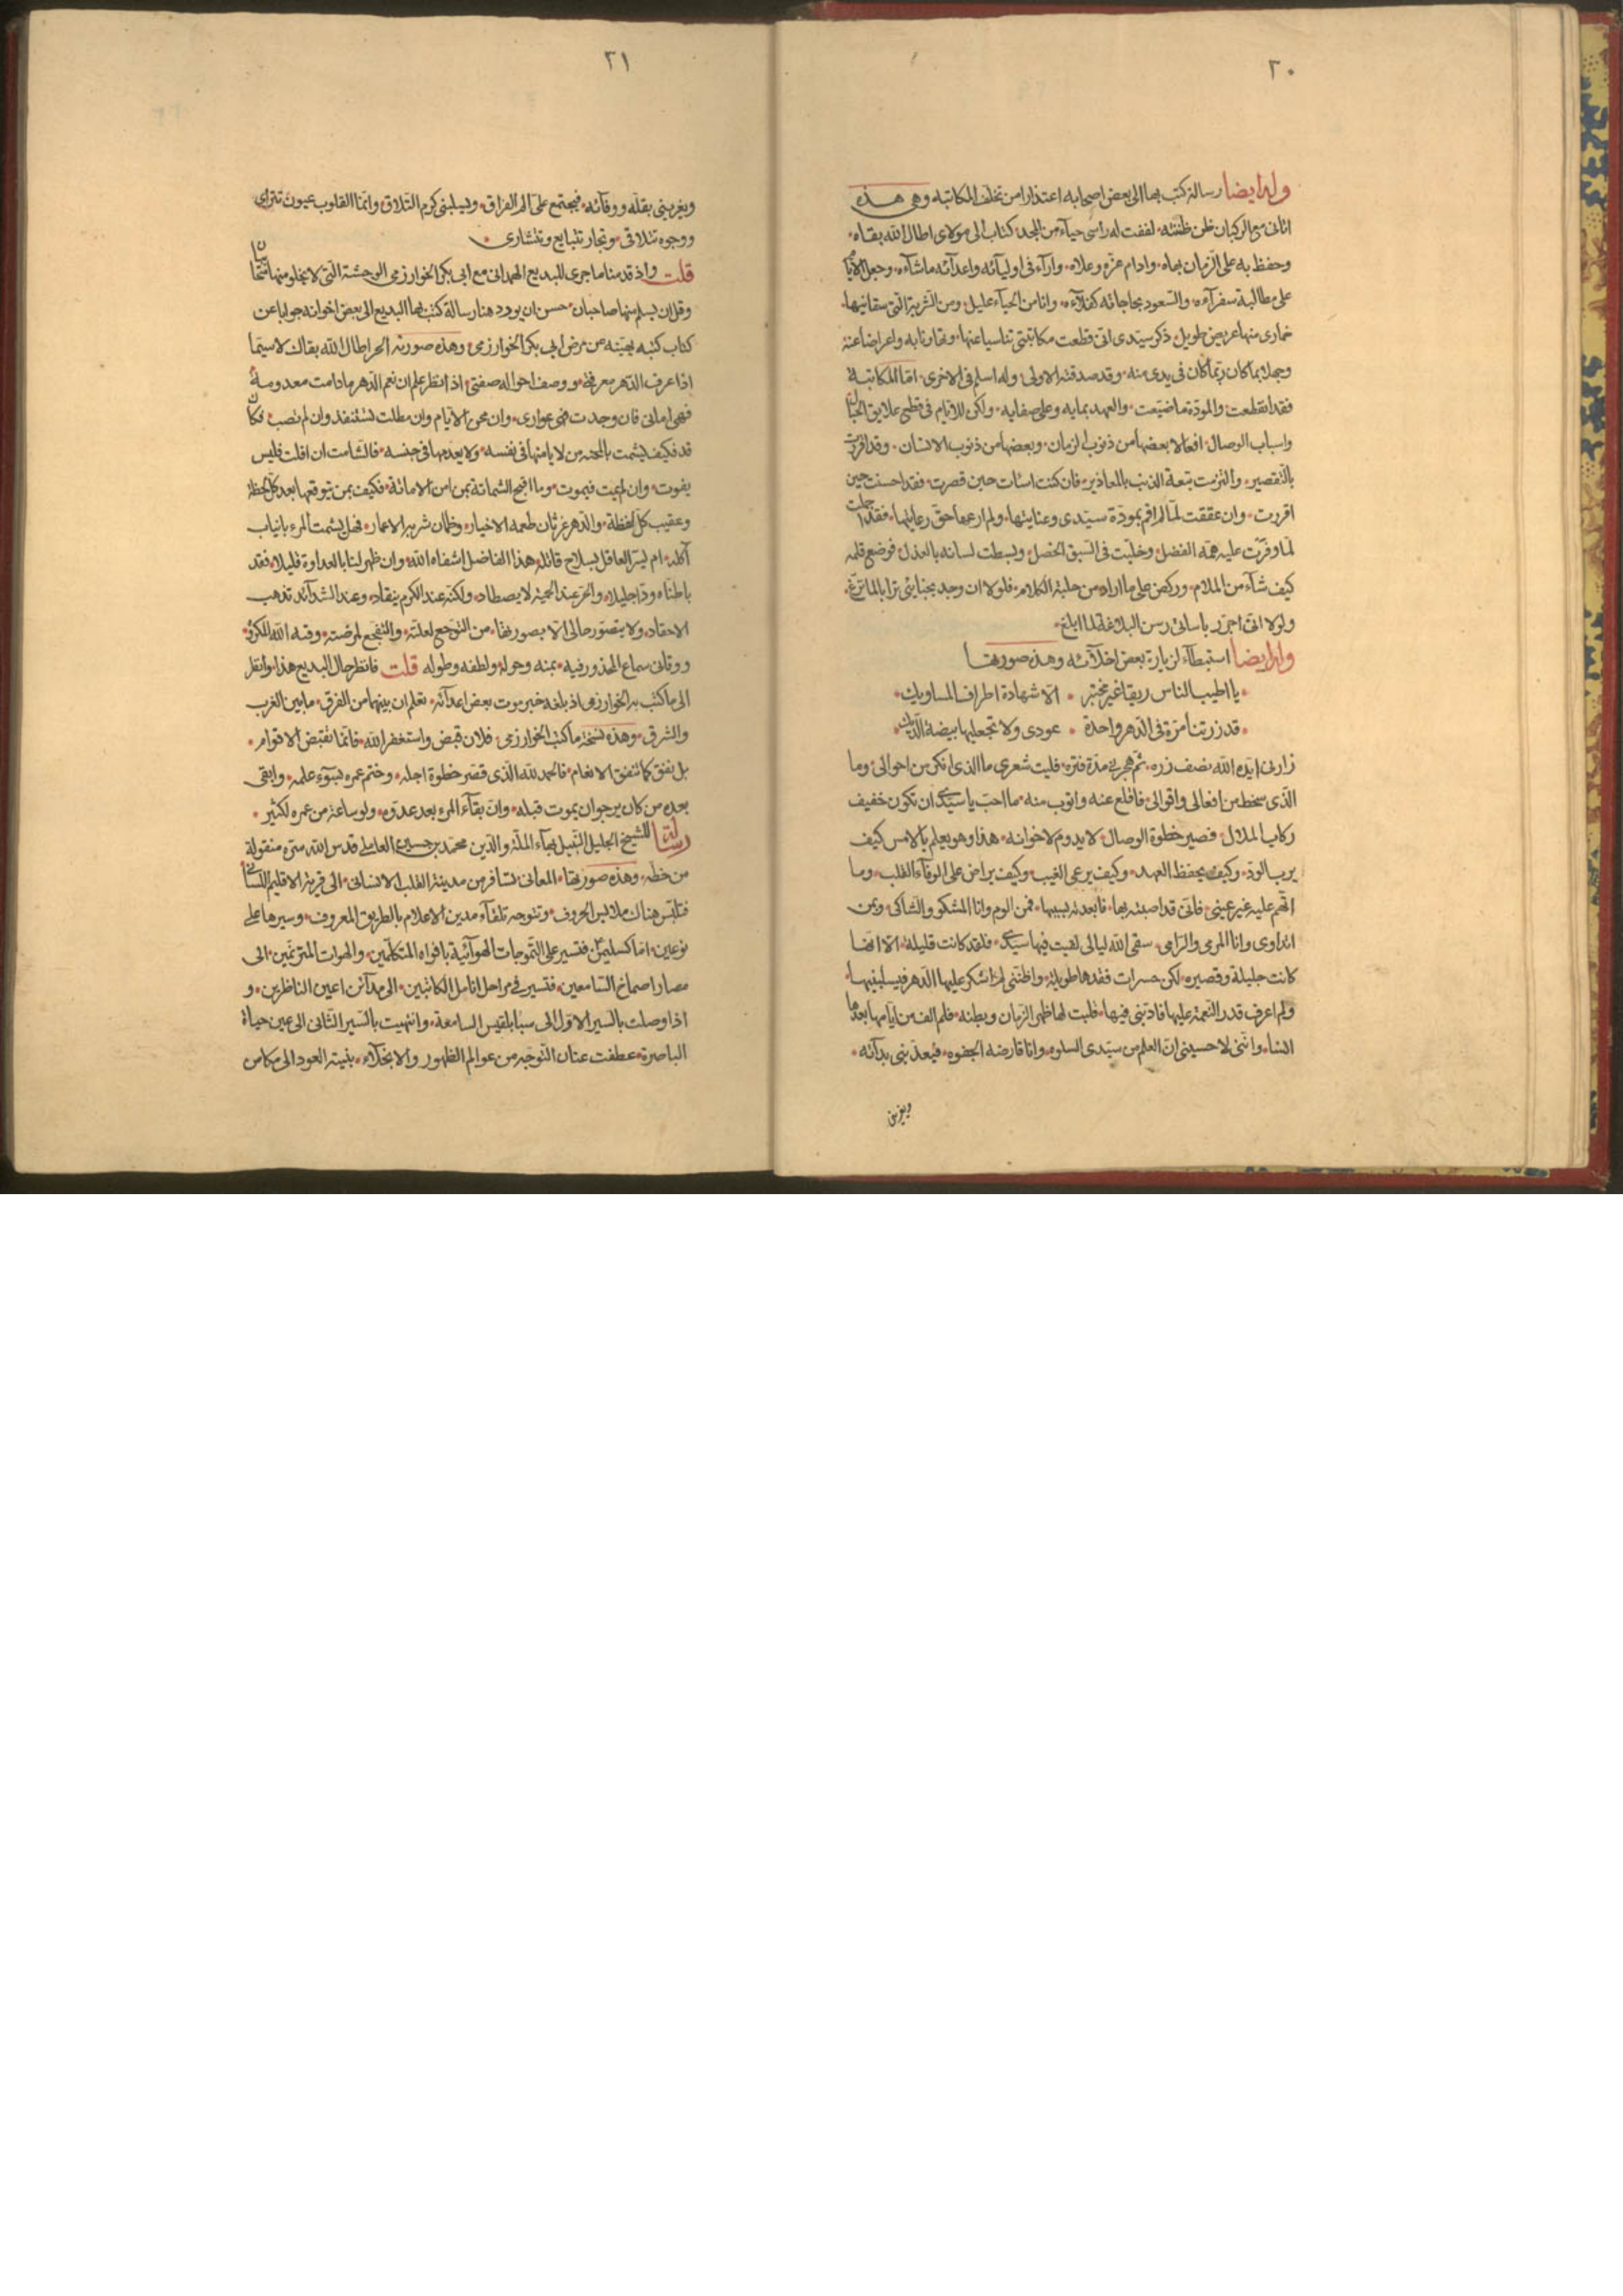 ٣٠
وله ايضا رسالة كتب بها الى بعض اصحابه اعتذارا من تخلف المكاتبه وهى هذه
اتانى مع الركبان ظن ظننته، لففت له راسى حياء من المجد، كتاب الى مولاى اطال الله بقاه،
وحفظ به على الزمان بهاه، وادام عزه وعلاه، وارآه فى اوليآئه واعدآئه ماشآءه، وجعل الايام
على مطالبه سفرآءه، والسعود بحاجاته كفلآءه، وانا من الحيآء عليل، ومن الشربة التى سقانيها،
خمارى منها عريض طويل، ذكر سيدى انى قطعت مكاتبتى تناسيا عنها، وتهاونا به واعراضا عنه
وجهلا بما كان ربما كان فى يدى منه، وقد صدقته الاولى، وله اسلم فى الاخرى، اما المكاتبة
فقد انقطعت، والمودة ما ضيعت، والعهد بمايه وعلى صفايه، ولكن للايام فى قطع علايق الحبال
واسباب الوصال، افعالا بعضها من ذنوب الزمان، وبعضها من ذنوب الانسان، وقد اقررت
بالتقصير، والتزمت تبعة الذنب بالمعاذير، فان كنت اسات حين قصرت، فقد احسنت حين
اقررت، وان عققت لما لم اقم بمودة سيدى وعنايتها، ولم ارعها حق رعايتها، فقد اجملت
لما وفرت عليه همه الفضل، وخليت فى السبق الخصل، وبسطت لسانه بالعذل، فوضع قلمه
كيف شآء من الملام، وركض على ما اراده من حلبة الكلام، فلولا ان وجد بجنايتى ترابا لما تمرغ،
ولولا انى اجرر باسائى رسن البلاغة لما ابلغ،
وله ايضا استبطآء لزيارة بعض اخلآئه وهذه صورتها
يا اطيب الناس ريقا غير مختبر ، الا شهادة اطراف المساويك،
قد زرتنا مرة فى الدهر واحدة ، عودى ولا تجعليها بيضة الديك،
زارنى ايده الله نصف زره، ثم هجرنى مدة فتره، فليت شعرى ما الذى انكر من احوالى، وما
الذى سخط من افعالى واقوالى، فاقلع عنه واتوب منه، ما احب يا سيدى ان تكون خفيف
ركاب الملال، قصير خطوة الوصال، لا يدوم لاخوانه، هذا وهو يعلم بالامس كيف
يرب الود، وكيف يحفظ العهد، وكيف يرعى الغيب، وكيف يراض على الوفآء القلب، وما
اتهم عليه غير عينى، فانى قد اصبته بها، فابعدته بسببها، فمن الوم وانا المشكو والشاكى، وبمن
اتداوى وانا المرمى والرامى، سقى الله ليالى لقيت فيها سيدى، فلقد كانت قليلة، الا انها
كانت جليلة وقصيره، لكن حسرات فقدها طويلة، واظننى لم اشكر عليها الدهر فيسلبنيها،
ولم اعرف قدر النعمة عليها فادبنى فيها، قلبت لها ظهر الزمان وبطنه، فلم الف من ايامها بعدها
النسا، واننى لاحسبنى ان العلم من سيدى السلوه، وانا قارضه الجفوه، فيعذبنى بدآئه،
ويغرينى
٣١
ويغرينى بقلة ووفآئه، فيجتمع على الم الفراق، ويسلبنى كرم التلاق، وانما القلوب عيون تترائى
ووجوه تتلاقى، وتجار تتبايع وتتشارى،
قلت واذ قدمنا ما جرى للبديع الهمدانى مع ابى بكر الخوارزمى الوحشة التى لا يخلو منها اثنان
وقل ان يسلم منها صاحبان، حسن ان يورد هنا رسالة كتب بها البديع الى بعض اخوانه جوابا عن
كتاب كتبه يهنيه عن مرض ابى بكر الخوارزمى، وهذه صورته الحر اطال الله بقاك لا سيما
اذا عرف الدهر معرفتى، ووصف احواله صفتى، اذا نظر علم ان نعم الدهر ما دامت معدومة
فهى امانى، فان وجدت فهى عوارى، وان محن الايام وان مطلت تستنفد وان لم تصب فكان
قد فكيف يشمت بالمحنه من لا يامنها فى نفسه، ولا يعدمها فى جنسه، فالشامت ان افلت فليس
يفوت، وان لم يمت فيموت، وما اقبح الشماتة بمن امن الاماتة، فكيف بمن يتوقعها بعد كل لحظة
وعقيب كل لفظة، والدهر غرثان طعمه الاخيار، وظمآن شربه الاعمار، فهل يشمت المرء بانياب
آكله، ام يسر العاقل بسلاح قاتله، هذا الفاضل اشفاه الله، وان ظهر لنا بالعداوة قليلا، فقد
باطناه ودا جليلا، والحر عند الحمية لا يصطاد، ولكنه عند الكرم ينقاد، وعند الشدآئد تذهب
الاحقاد، ولا يتصور حالى الا بصورتها، من التوجع لعلته، والتفجع لمرضته، وقيه الله المكروه،
ووقانى سماع المحذور فيه، بمنه وحوله ولطفه وطوله قلت فانظر حال البديع هذا، وانظر
الى ما كتب به الخوارزمى اذ بلغه خبر موت بعض اعدآئه، تعلم ان بينهما من الفرق، ما بين الغرب
والشرق، وهذه نسخة ما كتب الخوارزمى، فلان قبض واستغفر الله، فانما تقبض الاقوام،
بل نفق كما تنفق الانعام، فالحمد لله الذى قصر خطوة اجله، وختم عمره بسوء علمه، وابقى
بعده من كان يرجو ان يموت قبله، وان بقآء المرء بعد عدوه، ولو ساعة من عمره لكثير،
رسالة للشيخ الجليل النبيل بهآء الملة والدين محمد بن حسين العاملى قدس الله سره منقولة
من خطه، وهذه صورتها، المعانى تسافر من مدينة القلب الانسانى، الى قرية الاقليم اللسانى
فتلبس هناك ملابس الحروف، وتتوجه تلقآء مدين الاعلام بالطريق المعروف، وسيرها على
نوعين، اما كسليمن فتسير على التموجات الهوآئية بافواه المتكلمين، والهوات المترنمين، الى
مصار اصماخ السامعين، فتسير فى مراحل انامل الكاتبين، الى مدآئن اعين الناظرين، و
اذا وصلت بالسير الاول الى سبا بلقيس السامعة، وانتهيت بالسير الثانى الى عين حياة
الباصرة، عطفت عنان التوجه من عوالم الظهور والانجلآء، بنية العود الى مكامن